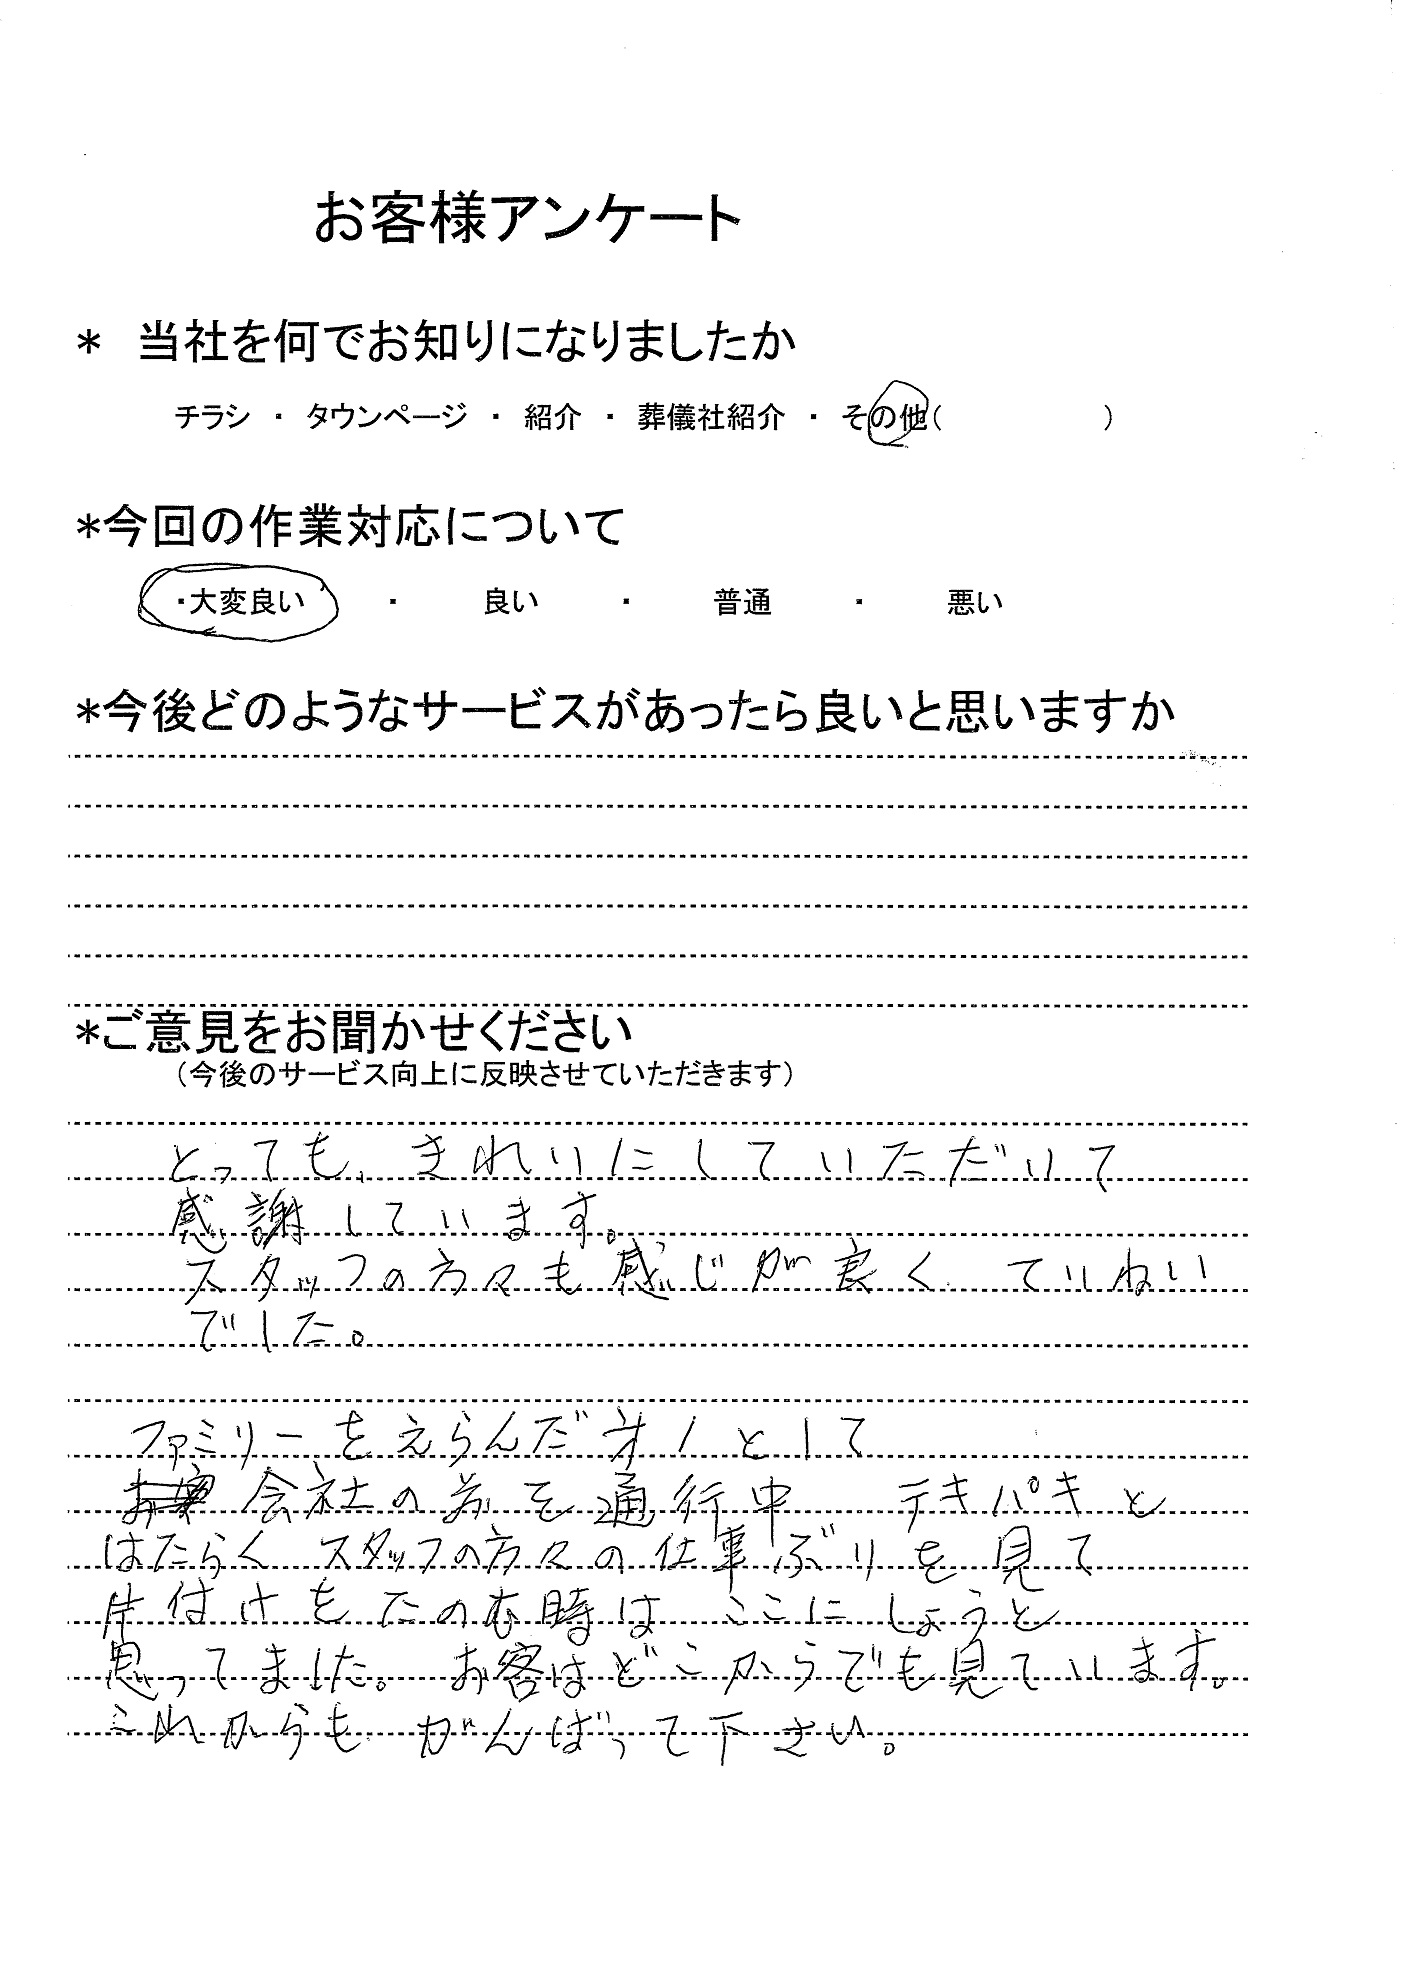 お客様アンケート
* 当社を何でお知りになりましたか
チラシ ・ タウンページ ・ 紹介 ・ 葬儀社紹介 ・ その他( )
*今回の作業対応について
・大変良い ・ 良い ・ 普通 ・ 悪い
*今後どのようなサービスがあったら良いと思いますか
*ご意見をお聞かせください
(今後のサービス向上に反映させていただきます)
とっても、きれいにしていただいて
感謝しています。
スタッフの方々も感じが良く ていねい
でした。
ファミリーをえらんだ才1として
会社の前を通行中 テキパキと
はたらく スタッフの方々の仕事ぶりを見て
片付けをたのむ時は ここにしようと
思ってました。 お客はどこからでも見ています。
これからも がんばって下さい。